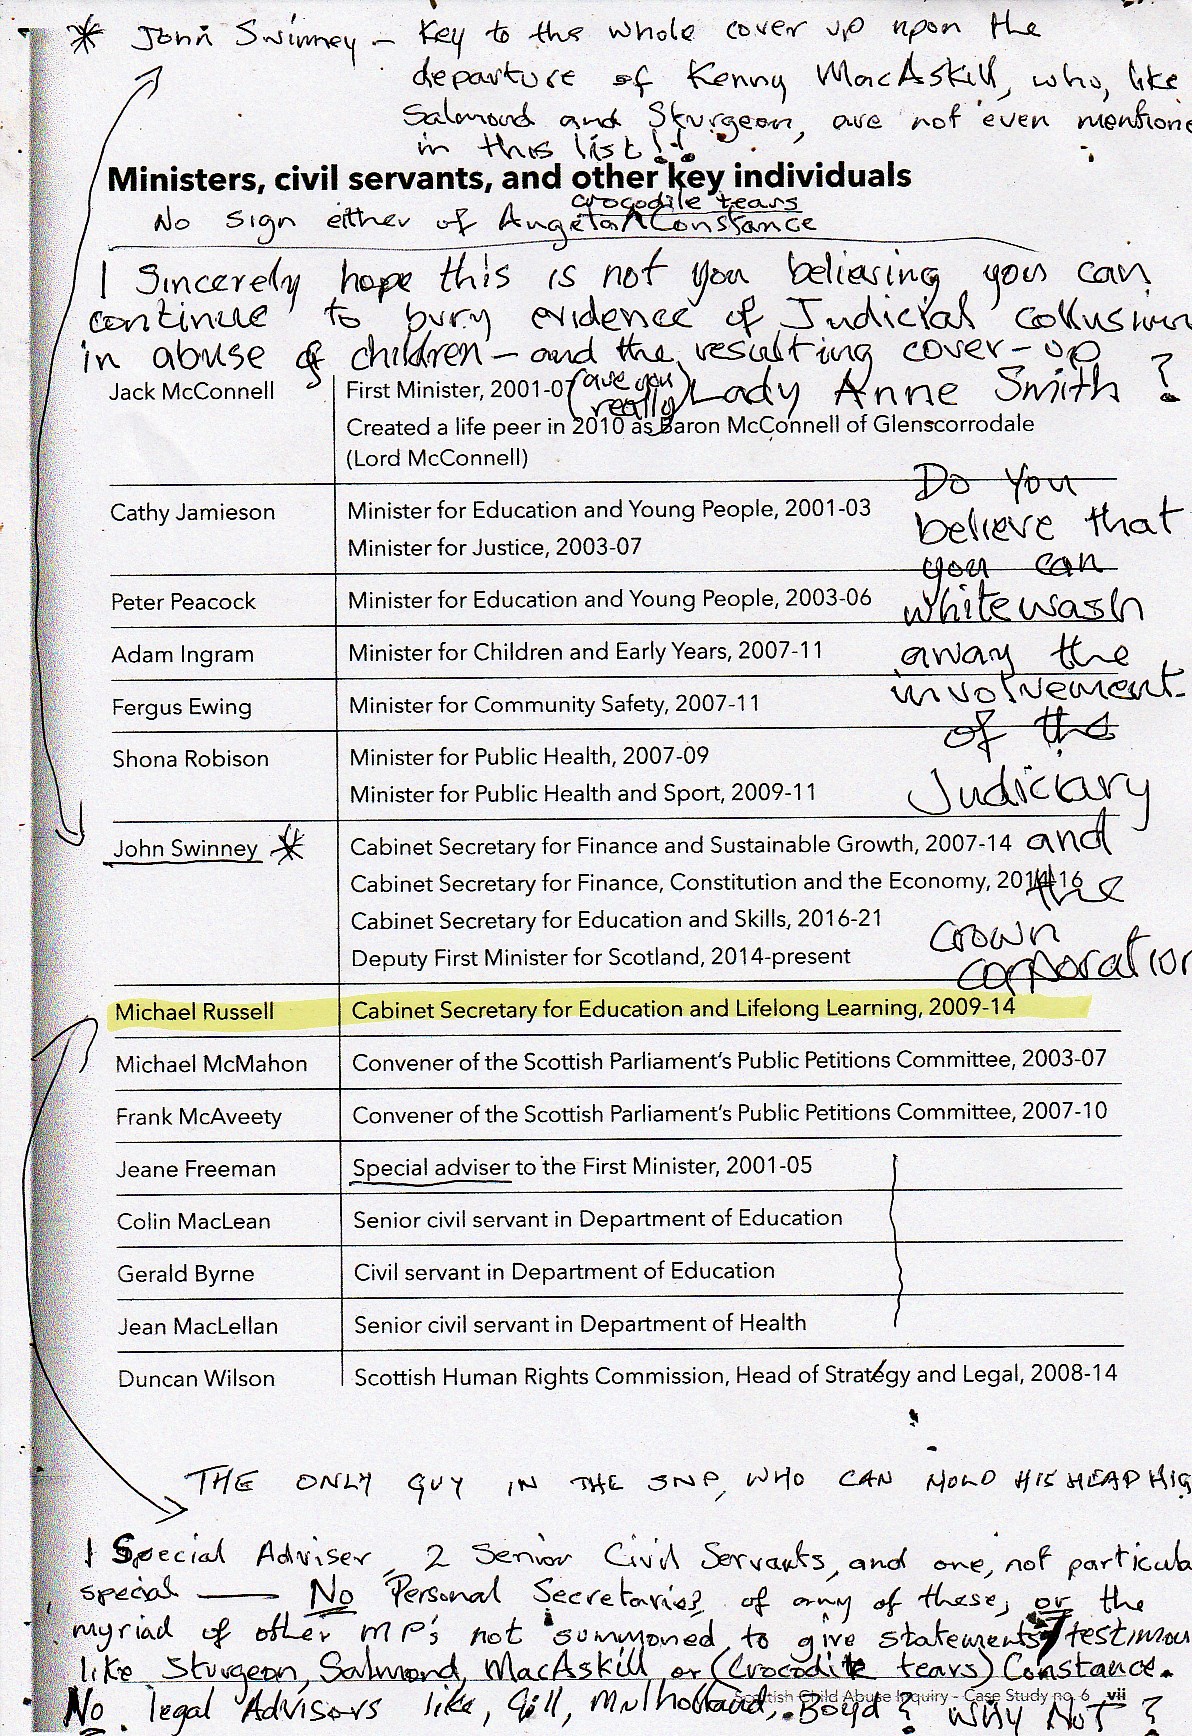 * John Swinney – Key to the whole cover up upon the
departure of Kenny MacAskill, who, like
Salmond and Sturgeon, are not even mentione
in this list!!
Ministers, civil servants, and other key individuals
crocodile tears
No sign either of Angela ^ Constance
I Sincerely hope this is not you believing you can
continue to bury evidence of Judicial collusion
in abuse of children – and the resulting cover-up
Jack McConnell First Minister, 2001-07 (are you really) Lady Anne Smith ?
Created a life peer in 2010 as Baron McConnell of Glenscorrodale
(Lord McConnell)
Do You
believe that
you can
whitewash
away the
involvement
of the
Judiciary
and
the
crown
corporation
Cathy Jamieson Minister for Education and Young People, 2001-03
Minister for Justice, 2003-07
Peter Peacock Minister for Education and Young People, 2003-06
Adam Ingram Minister for Children and Early Years, 2007-11
Fergus Ewing Minister for Community Safety, 2007-11
Shona Robison Minister for Public Health, 2007-09
Minister for Public Health and Sport, 2009-11
John Swinney * Cabinet Secretary for Finance and Sustainable Growth, 2007-14
Cabinet Secretary for Finance, Constitution and the Economy, 2014-16
Cabinet Secretary for Education and Skills, 2016-21
Deputy First Minister for Scotland, 2014-present
Michael Russell Cabinet Secretary for Education and Lifelong Learning, 2009-14
Michael McMahon Convener of the Scottish Parliament's Public Petitions Committee, 2003-07
Frank McAveety Convener of the Scottish Parliament's Public Petitions Committee, 2007-10
Jeane Freeman Special adviser to the First Minister, 2001-05
Colin MacLean Senior civil servant in Department of Education
Gerald Byrne Civil servant in Department of Education
Jean MacLellan Senior civil servant in Department of Health
Duncan Wilson Scottish Human Rights Commission, Head of Strategy and Legal, 2008-14
THE ONLY GUY IN THE SNP, WHO CAN HOLD HIS HEAD HIG
1 Special Adviser, 2 Senior Civil Servants, and one, not particula
special — No Personal Secretaries, of any of these, or the
myriad of other MP's not summoned to give statements / testimon
like Sturgeon, Salmond, MacAskill, or (Crocodile tears) Constance.
Scottish Child Abuse Inquiry – Case Study no. 6 vii
No legal Advisors like, Gill, Mulholland, Boyd? Why Not?